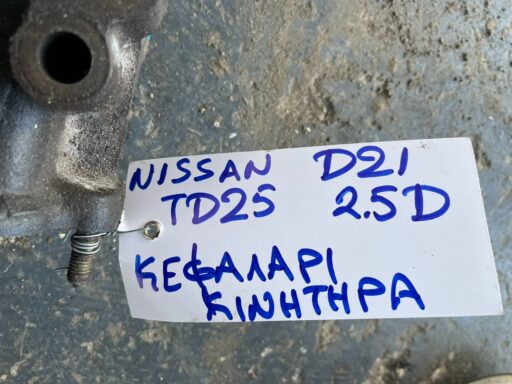 NISSAN D21
TD25 2.5D
ΚΕΦΑΛΑΡΙ
ΚΙΝΗΤΗΡΑ